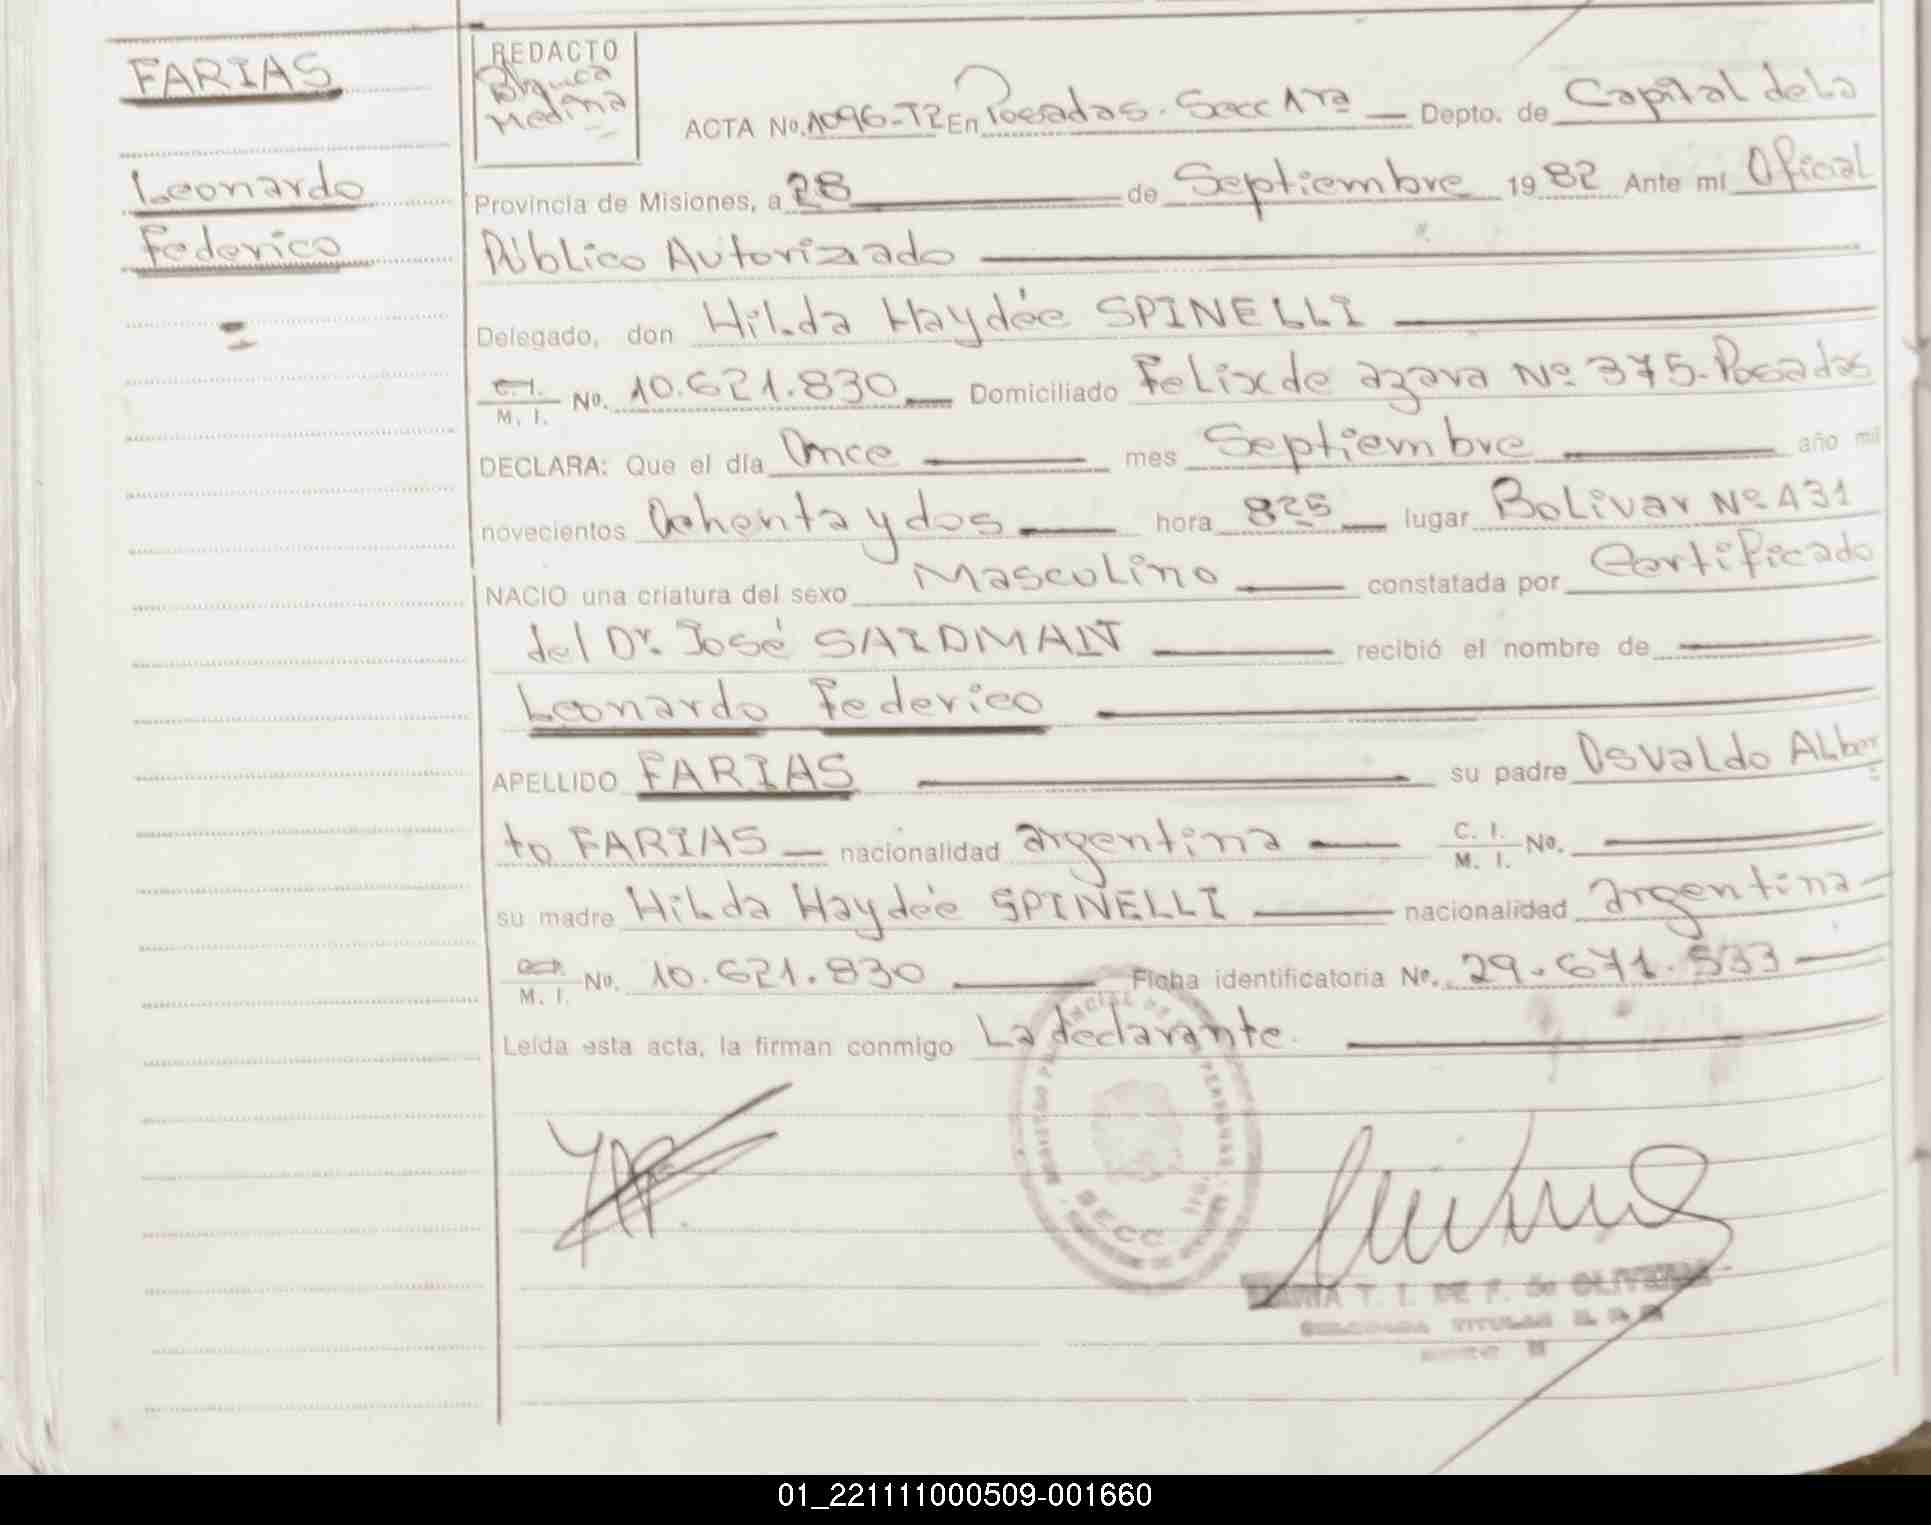 FARIAS
Leonardo
Federico
REDACTO
Blanca
Medina
ACTA No. 1096-T2 En Posadas. Secc 1ra Depto. de Capital de La
Provincia de Misiones, a 28 de Septiembre 1982 Ante mí Oficial
Público Autorizado
Delegado, don Hilda Haydée SPINELLI
C. I. M. I. No. 10.621.830 Domiciliado Felix de azara Nº 375-Posadas
DECLARA: Que el día Once mes Septiembre año mil
novecientos Ochenta y dos hora 825 lugar Bolivar Nº 431
NACIO una criatura del sexo Masculino constatada por Certificado
del Dr. José SAIDMAN recibió el nombre de
Leonardo Federico
APELLIDO FARIAS su padre Osvaldo ALber
to FARIAS nacionalidad argentina C. I. M. I. No.
su madre Hilda Haydée SPINELLI nacionalidad argentina
M. I. No. 10.621.830 Ficha identificatoria No. 29.671.533
Leída esta acta, la firman conmigo La declarante.
SECC
MARIA T. I. DE F. de OLIVEIRA
01_221111000509-001660